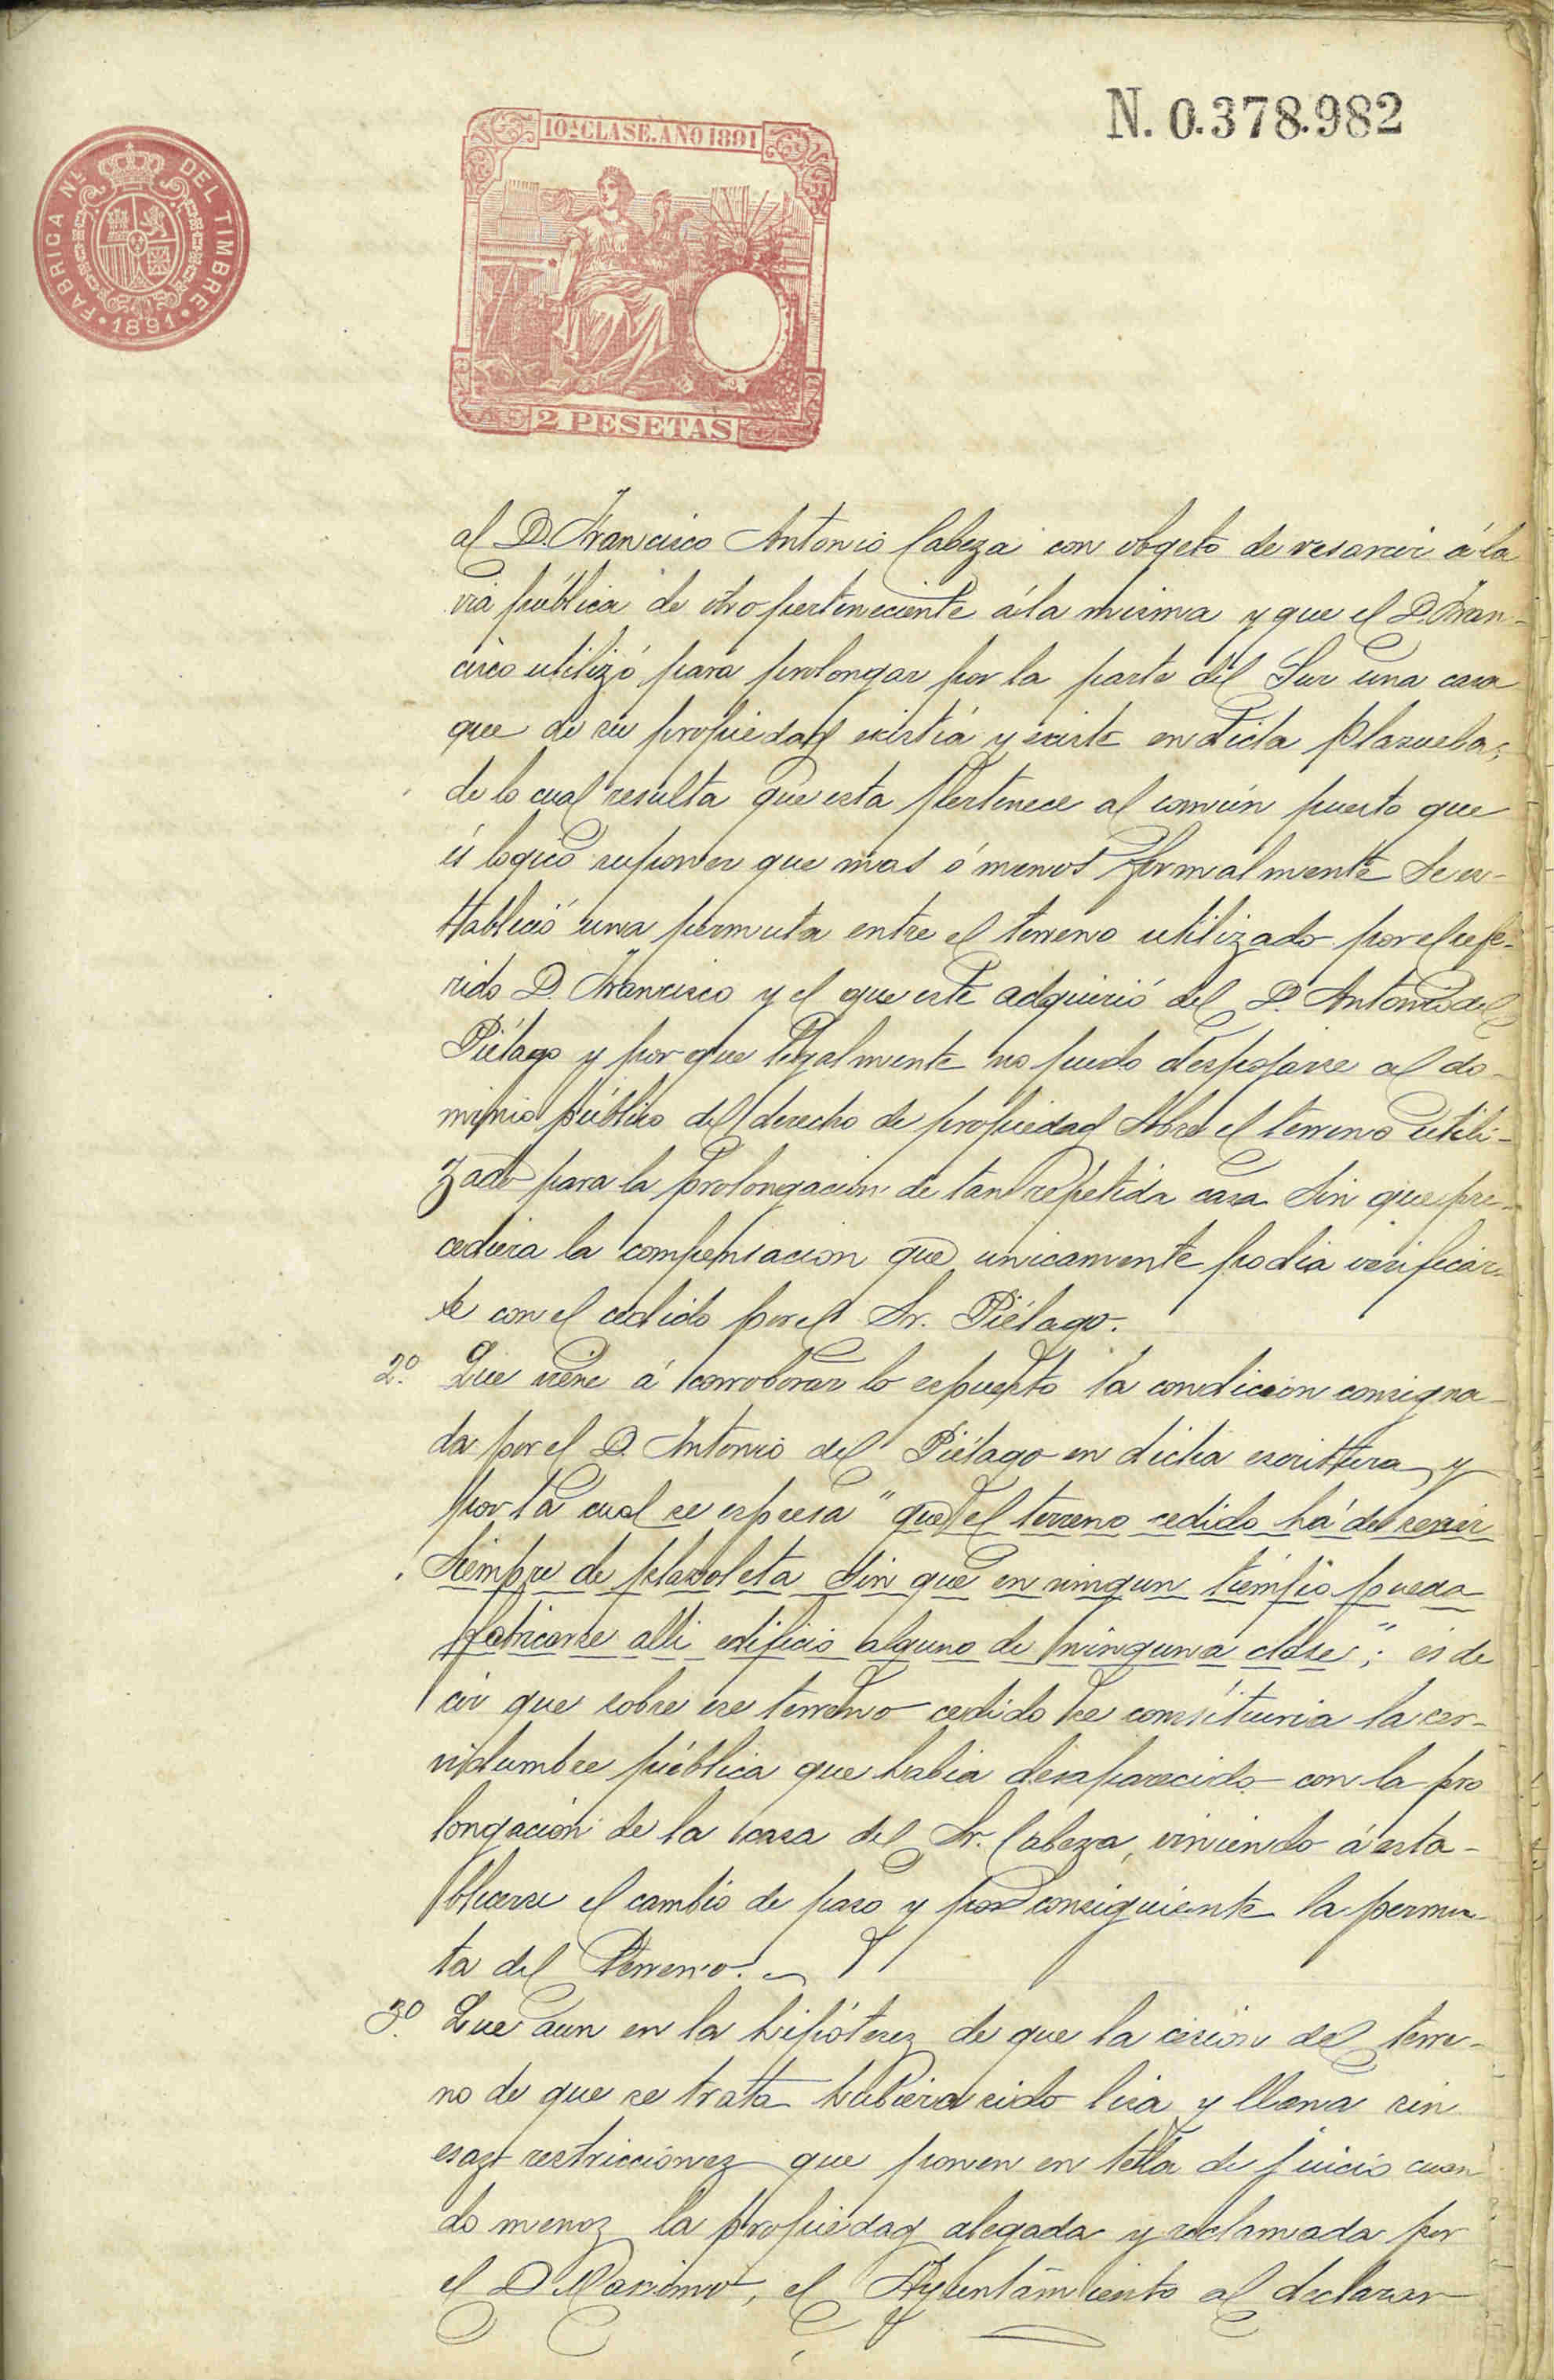 N. 0.378.982
10ª CLASE. AÑO 1891
FABRICA NL. DEL TIMBRE
• 1891 •
2 PESETAS
al D. Francisco Antonio Cabeza con obgeto de resarcir á la
via pública de otro perteneciente á la misma y que el D. Fran-
cisco utilizó para prolongar por la parte del Sur una casa
que de su propiedad existia y existe en dicta plazuela;
de lo cual resulta que esta pertenece al común puesto que
és logico suponer que mas ó menos formalmente se es-
tableció una permuta entre el terreno utilizado por el refe-
rido D. Francisco y el que este adquirió del D. Antonio del
Piélago y por que legalmente no pudo despojarse al do-
minio público del derecho de propiedad sobre el terreno utili-
zado para la prolongacion de tan repetida casa sin que pre-
cediera la compensacion que unicamente podia verificar-
se con el cedido por el Sr. Piélago.
2º. Que viene á corroborar lo espuesto la condicion consigna-
da por el D. Antonio del Piélago en dicha escritura y
por la cual se espresa "que el terreno cedido há de servir
siempre de plazoleta sin que en ningun tiempo pueda
fabricarse alli edificio alguno de ninguna clase"; és de
cir que sobre ese terreno cedido se constituiria la ser-
vidumbre pública que habia desaparecido con la pro
longación de la casa del Sr. Cabeza, viniendo á esta-
blecerse el cambio de paso y por consiguiente la permu-
ta del terreno.
3º. Que aun en la hipótesis de que la cesión del terre-
no de que se trata hubiera sido lisa y llana sin
esas restricciones que ponen en tela de juicio cuan
do menos la propiedad alegada y reclamada por
el D. Maximo, el Ayuntamiento al declarar